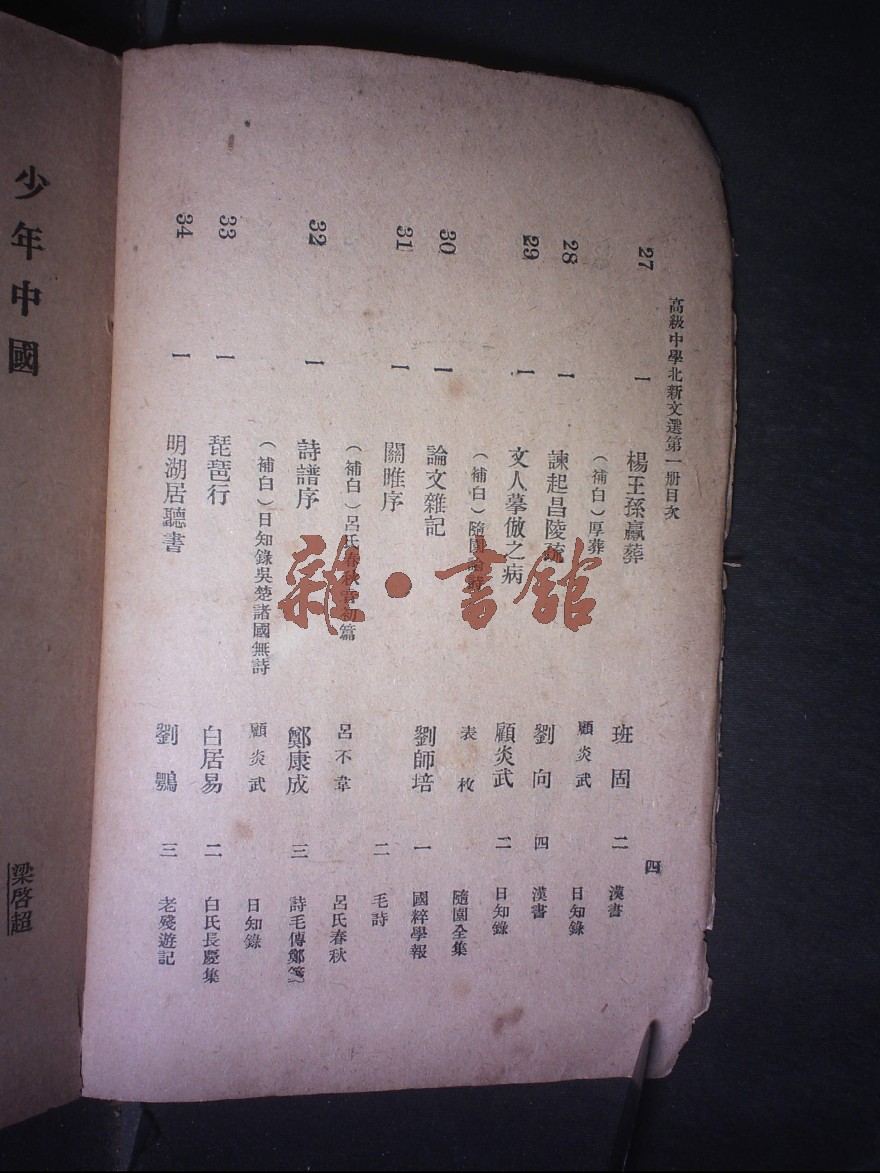 高級中學北新文選第一册目次
四
27 一 楊王孫臝葬 班固 二 漢書
(補白)厚葬 顧炎武 日知錄
28 一 諫起昌陵疏 劉向 四 漢書
29 一 文人摹倣之病 顧炎武 二 日知錄
(補白)隨園 袁枚 隨園全集
30 一 論文雜記 劉師培 一 國粹學報
31 一 關雎序 二 毛詩
(補白)呂氏春秋音初篇 呂不韋 呂氏春秋
32 一 詩譜序 鄭康成 三 詩毛傳鄭箋
(補白)日知錄吳楚諸國無詩 顧炎武 日知錄
33 一 琵琶行 白居易 二 白氏長慶集
34 一 明湖居聽書 劉鶚 三 老殘遊記
少年中國
梁啓超
雜·書館